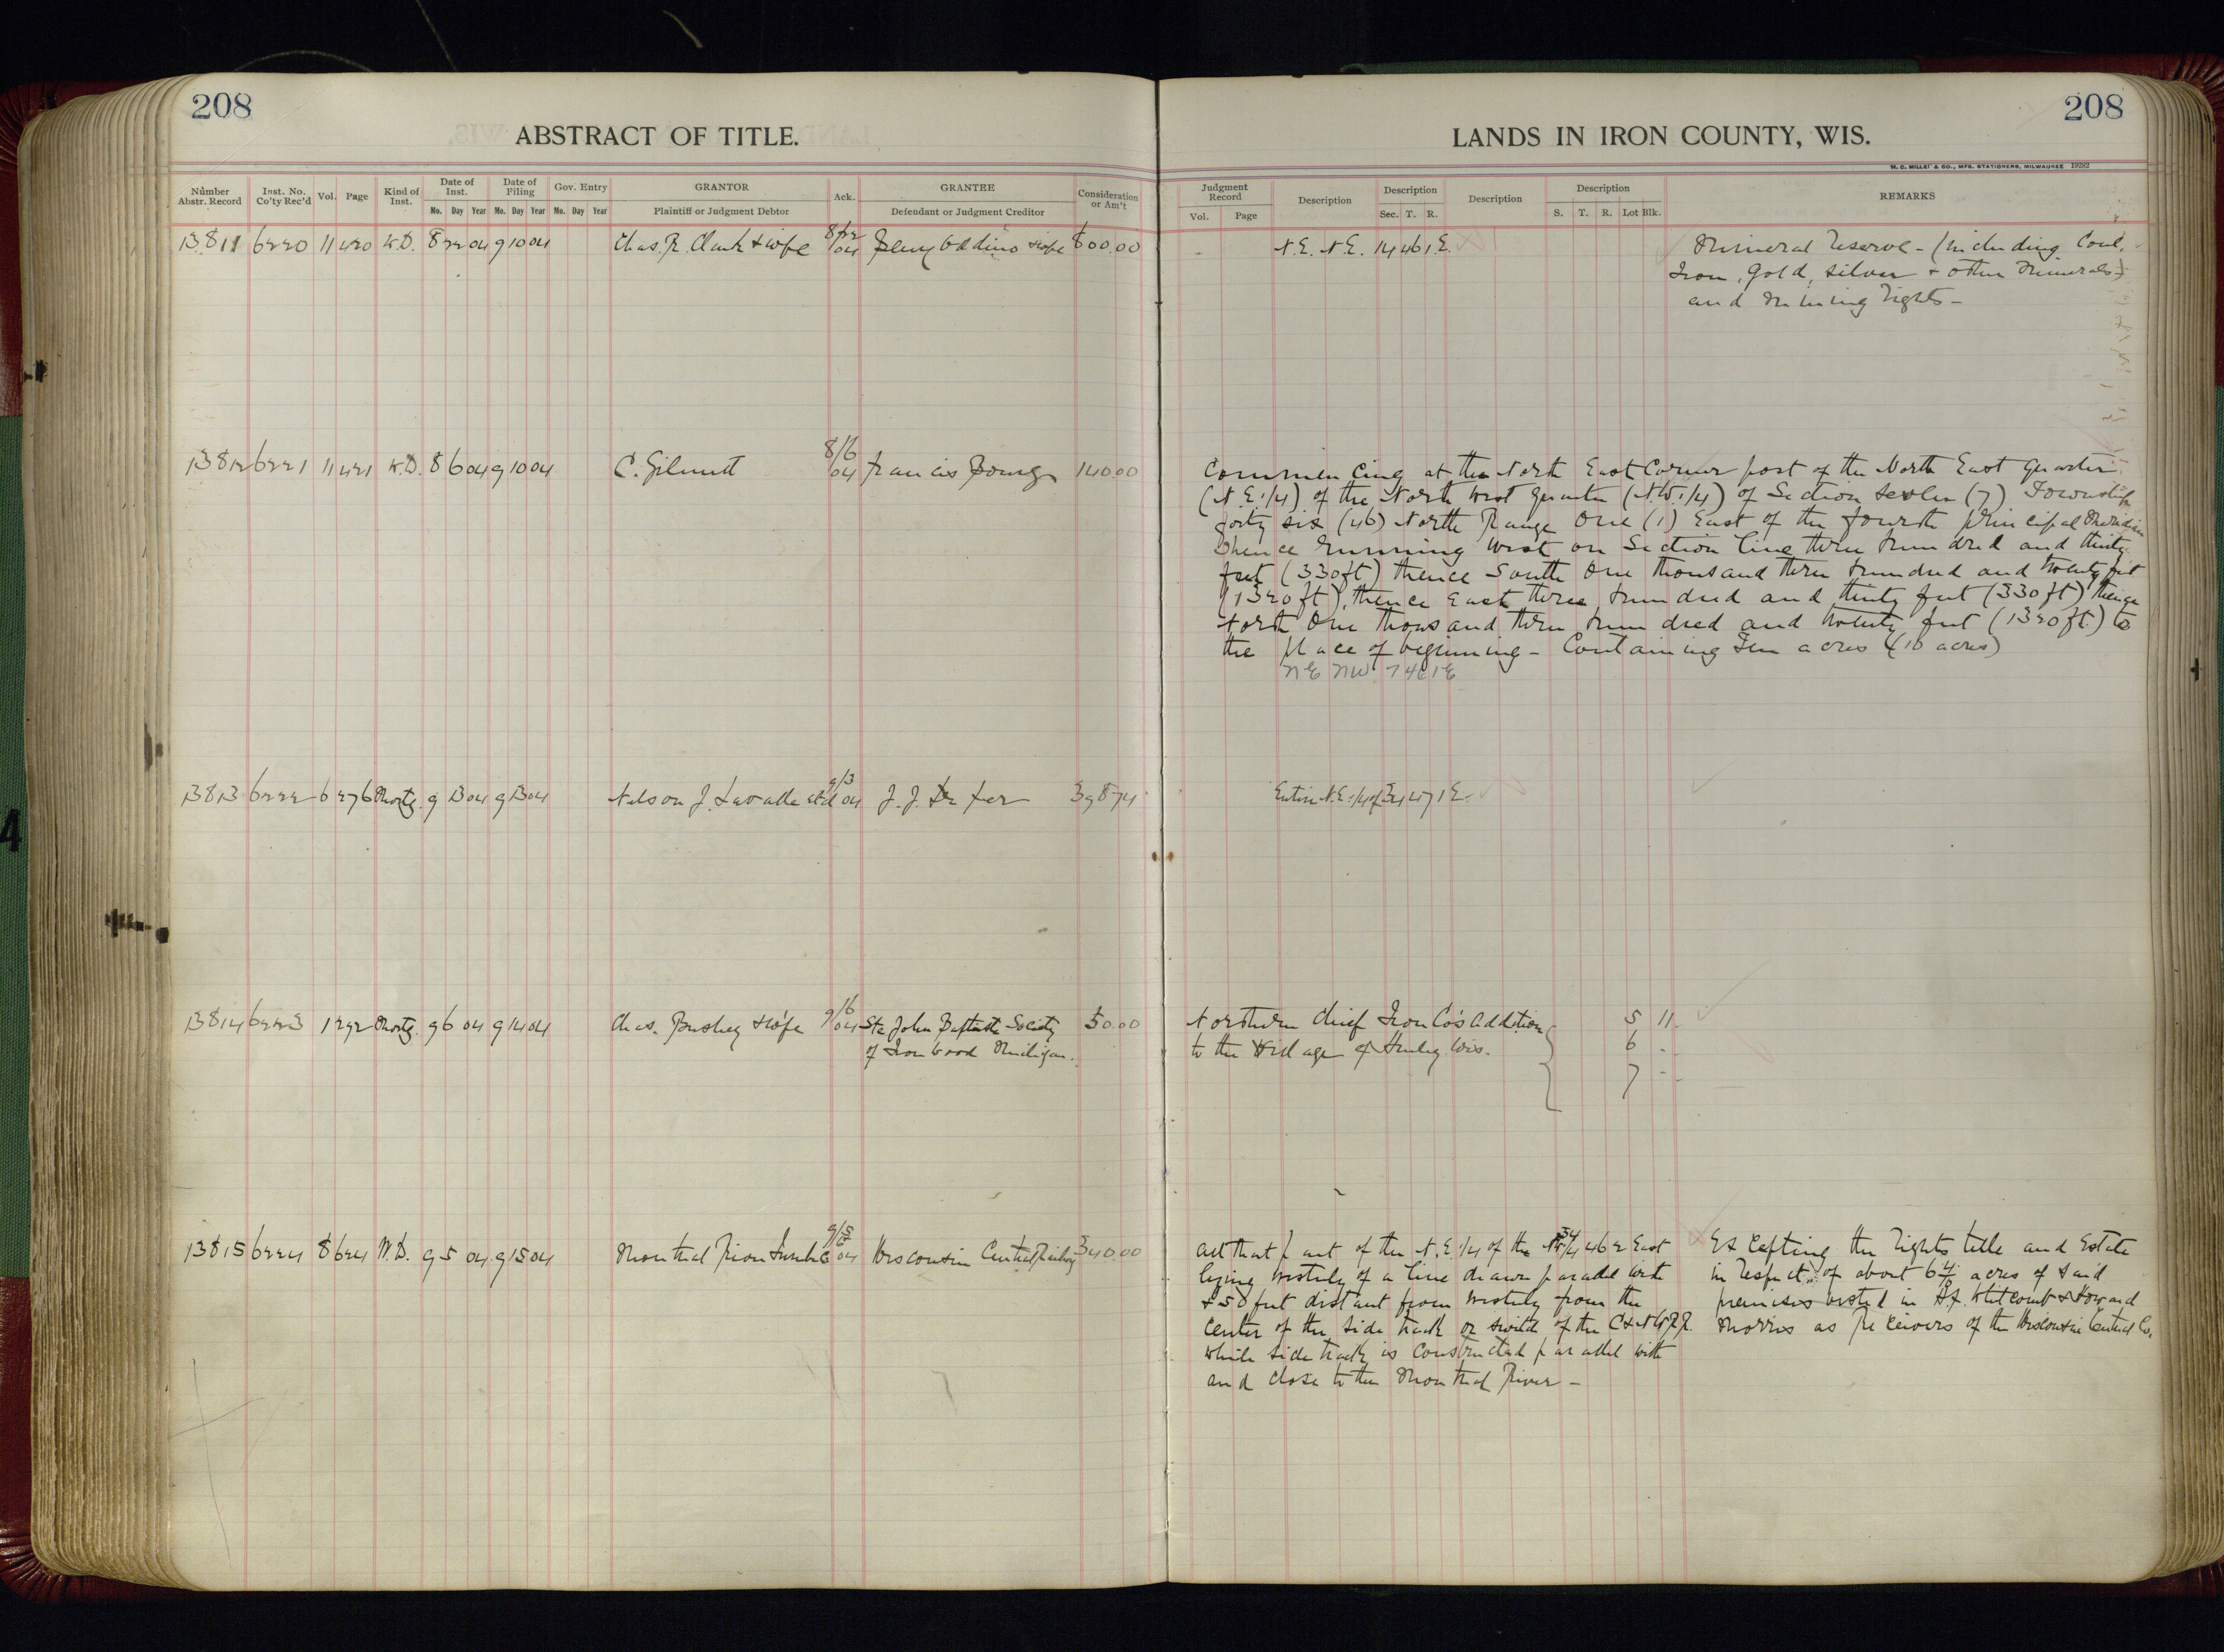 208
ABSTRACT OF TITLE.
Number Abstr. Record
Inst. No. Co'ty Rec'd
Vol.
Page
Kind of Inst.
Date of Inst.
Mo. Day Year
Date of Filing
Mo. Day Year
Gov. Entry
Mo. Day Year
GRANTOR
Plaintiff or Judgment Debtor
Ack.
GRANTEE
Defendant or Judgment Creditor
Consideration or Am't
13811 6220 11 420 W.D. 8 22 04 9 10 04 Chas. R. Clark & wife 8/22 04 & wife 600.00
13812 6221 11 421 W.D. 8 6 04 9 10 04 C. 8/6 04 Francis 140.00
13813 6222 6 276 Mortg. 9 13 04 9 13 04 Nelson J. Lavalle et al 9/3 04 J. J. 398 74
13814 6223 1 292 Mortg. 9 6 04 9 14 04 Chas. Bushey & wife 9/6 04 Ste John Baptiste Society 50.00
of Ironwood Michigan.
13815 6224 8 624 W.D. 9 5 04 9 15 04 Montreal River Lumber Co 04 Wisconsin Central Railway 340.00
208
LANDS IN IRON COUNTY, WIS.
H. C. MILLER & CO., MFG. STATIONERS, MILWAUKEE 19282
Judgment Record
Vol. Page
Description
Description
Sec. T. R.
Description
Description
S. T. R. Lot Blk.
REMARKS
N.E. N.E. 14 46 1 E. Mineral reserve - (including Coal,
Iron, Gold, Silver & other Minerals)
and Mining rights -
Commencing at the North East Corner post of the North East Quarter
(N.E. 1/4) of the North West Quarter (N.W. 1/4) of Section Seven (7) Township
forty six (46) North Range One (1) East of the fourth principal Meridian
Thence running West on Section line three hundred and thirty
feet (330 ft) thence South One thousand three hundred and twenty feet
(1320 ft), thence East three hundred and thirty feet (330 ft) thence
North One thousand three hundred and twenty feet (1320 ft.) to
the place of beginning - Containing Ten acres (10 acres)
NE NW 7 46 1 E
Entire N.E. 1/4 of 34 47 1 E.
Northern Chief Iron Co's Addition 5 11
to the Village of Hurley Wis. 6 "
7 "
All that part of the N.E. 1/4 of the 46 2 East
lying westerly of a line drawn parallel with
& 50 feet distant from westerly from the
center of the side track or switch of the C & N W R.R.
which side track is constructed parallel with
and close to the Montreal River -
Excepting the rights title and Estate
in respect of about acres of said
premises vested in H.F. Whitcomb & Howard
Morris as Receivers of the Wisconsin Central Co.